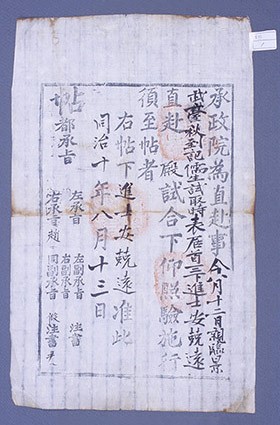 承政院為直赴事今月十二日親臨景
武臺秋到記儒生試取時表居首三下進士安兢遠
直赴　殿試合下仰照驗施行
須至帖者
右帖下進士安兢遠准此
同治十年八月十三日
帖
都承旨
左承旨
右承旨 趙
左副承旨
右副承旨
同副承旨
注書
假注書